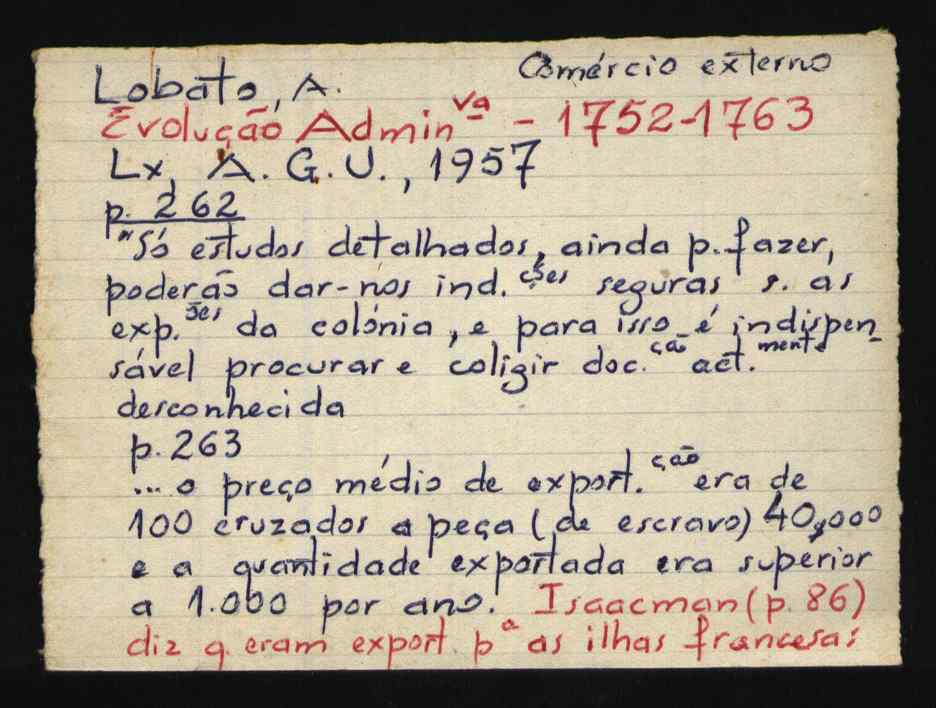 Comércio externo
Lobato, A.
Evolução Adminva - 1752-1763
Lx, A.G.U., 1957
p. 262
"Só estudos detalhados, ainda p. fazer,
poderão dar-nos ind.ções seguras s. as
exp.ões da colónia, e para isso é indispen-
sável procurar e coligir doc.ção act.mente
desconhecida
p. 263
... o preço médio de export.ção era de
100 cruzados a peça (de escravo) 40,000
e a quantidade exportada era superior
a 1.000 por ano. Isaacman (p. 86)
diz q. eram export. pª as ilhas francesas